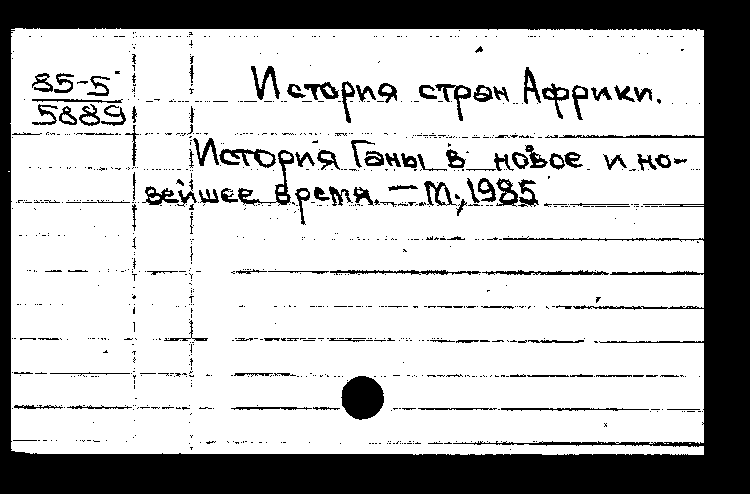 85-5
5889
История стран Африки.
История Ганы в новое и но-
вейшее время. — М., 1985